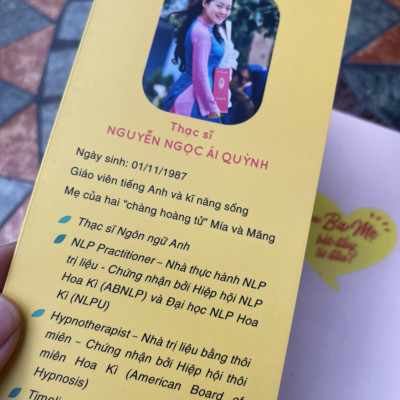 Thạc sĩ
NGUYỄN NGỌC ÁI QUỲNH
Ngày sinh: 01/11/1987
Giáo viên tiếng Anh và kĩ năng sống
Mẹ của hai "chàng hoàng tử" Mía và Măng
Thạc sĩ Ngôn ngữ Anh
NLP Practitioner – Nhà thực hành NLP
trị liệu - Chứng nhận bởi Hiệp hội NLP
Hoa Kì (ABNLP) và Đại học NLP Hoa
Kì (NLPU)
Hypnotherapist – Nhà trị liệu bằng thôi
miên – Chứng nhận bởi Hiệp hội thôi
miên Hoa Kì (American Board of
Hypnosis)
Ba Mẹ
bắt đầu
từ đâu?